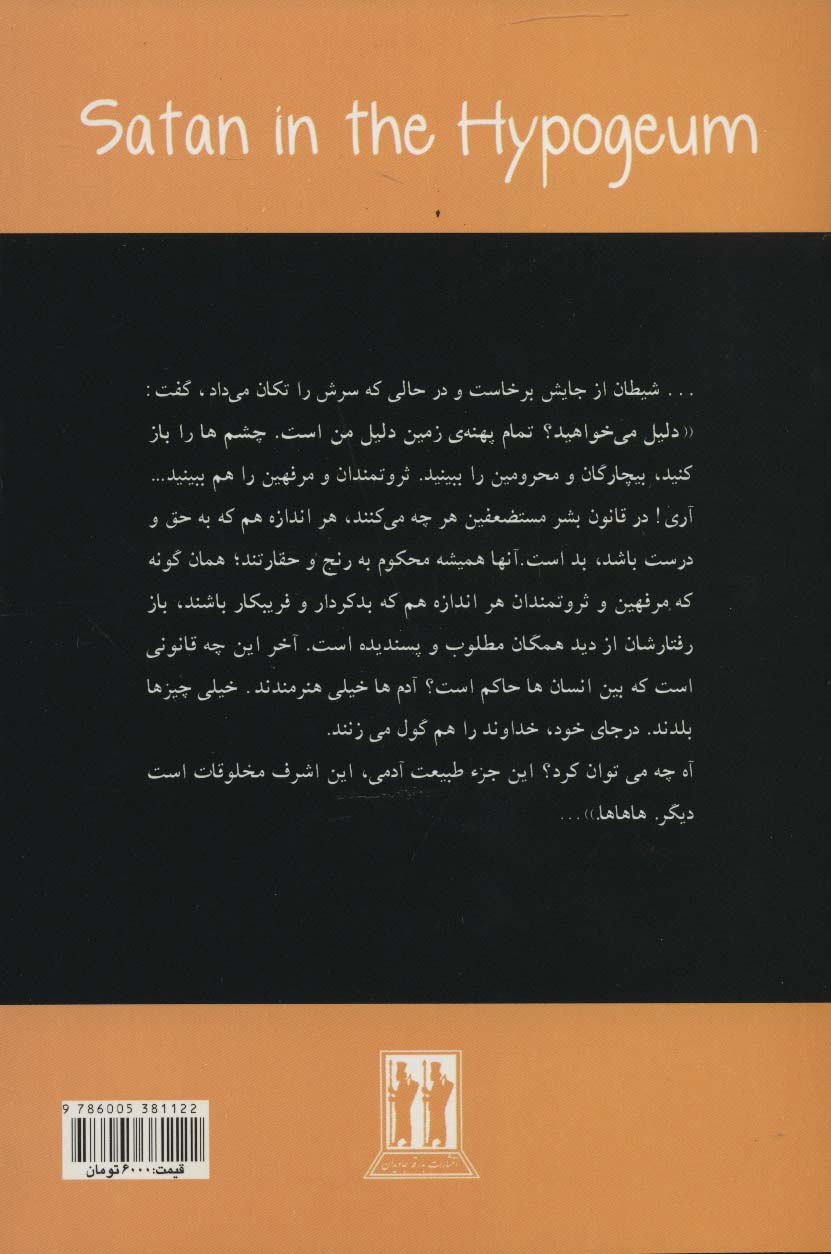 Satan in the Hypogeum
... شیطان از جایش برخاست و در حالی که سرش را تکان می‌داد، گفت:
((دلیل می‌خواهید؟ تمام پهنه‌ی زمین دلیل من است. چشم ها را باز
کنید، بیچارگان و محرومین را ببینید. ثروتمندان و مرفهین را هم ببینید...
آری! در قانون بشر مستضعفین هر چه می‌کنند، هر اندازه هم که به حق و
درست باشد، بد است.آنها همیشه محکوم به رنج و حقارتند؛ همان گونه
که مرفهین و ثروتمندان هر اندازه هم که بدکردار و فریبکار باشند، باز
رفتارشان از دید همگان مطلوب و پسندیده است. آخر این چه قانونی
است که بین انسان ها حاکم است؟ آدم ها خیلی هنرمندند. خیلی چیزها
بلدند. درجای خود، خداوند را هم گول می زنند.
آه چه می توان کرد؟ این جزء طبیعت آدمی، این اشرف مخلوقات است
دیگر. هاهاها.))...
انتشارات بدرقه جاویدان
9 786005 381122
قیمت: ۶۰۰۰ تومان